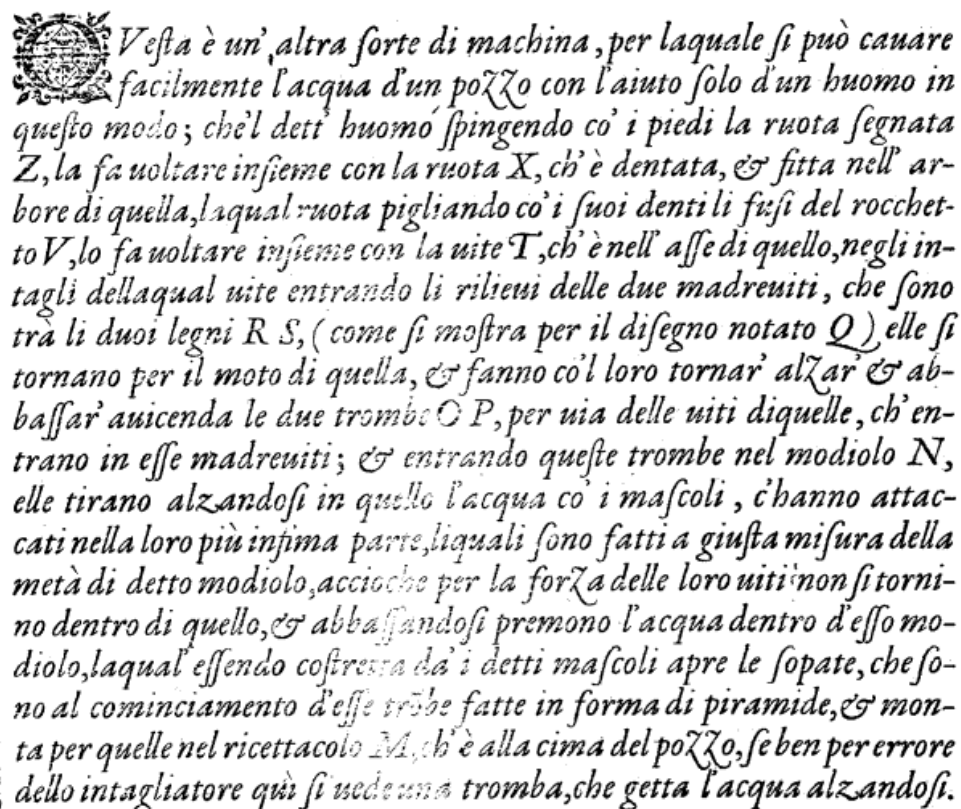 QVesta è un' altra sorte di machina, per laquale si può cauare
facilmente l'acqua d'un pozzo con l'aiuto solo d'un huomo in
questo modo; che'l dett' huomo spingendo co' i piedi la ruota segnata
Z, la fa uoltare insieme con la ruota X, ch' è dentata, & fitta nell' ar-
bore di quella, laqual ruota pigliando co' i suoi denti li fusi del rocchet-
to V, lo fa uoltare insieme con la uite T, ch' è nell' asse di quello, negli in-
tagli dellaqual uite entrando li rilieui delle due madreuiti, che sono
trà li duoi legni R S, (come si mostra per il disegno notato Q) elle si
tornano per il moto di quella, & fanno co'l loro tornar' alzar' & ab-
bassar' auicenda le due trombe O P, per uia delle uiti diquelle, ch' en-
trano in esse madreuiti; & entrando queste trombe nel modiolo N,
elle tirano alzandosi in quello l'acqua co' i mascoli, c'hanno attac-
cati nella loro più infima parte, liquali sono fatti a giusta misura della
metà di detto modiolo, accioche per la forza delle loro uiti non si torni-
no dentro di quello, & abbassandosi premono l'acqua dentro d'esso mo-
diolo, laqual' essendo costretta da' i detti mascoli apre le sopate, che so-
no al cominciamento d'esse trõbe fatte in forma di piramide, & mon-
ta per quelle nel ricettacolo M, ch' è alla cima del pozzo, se ben per errore
dello intagliatore quì si uede una tromba, che getta l'acqua alzandosi.